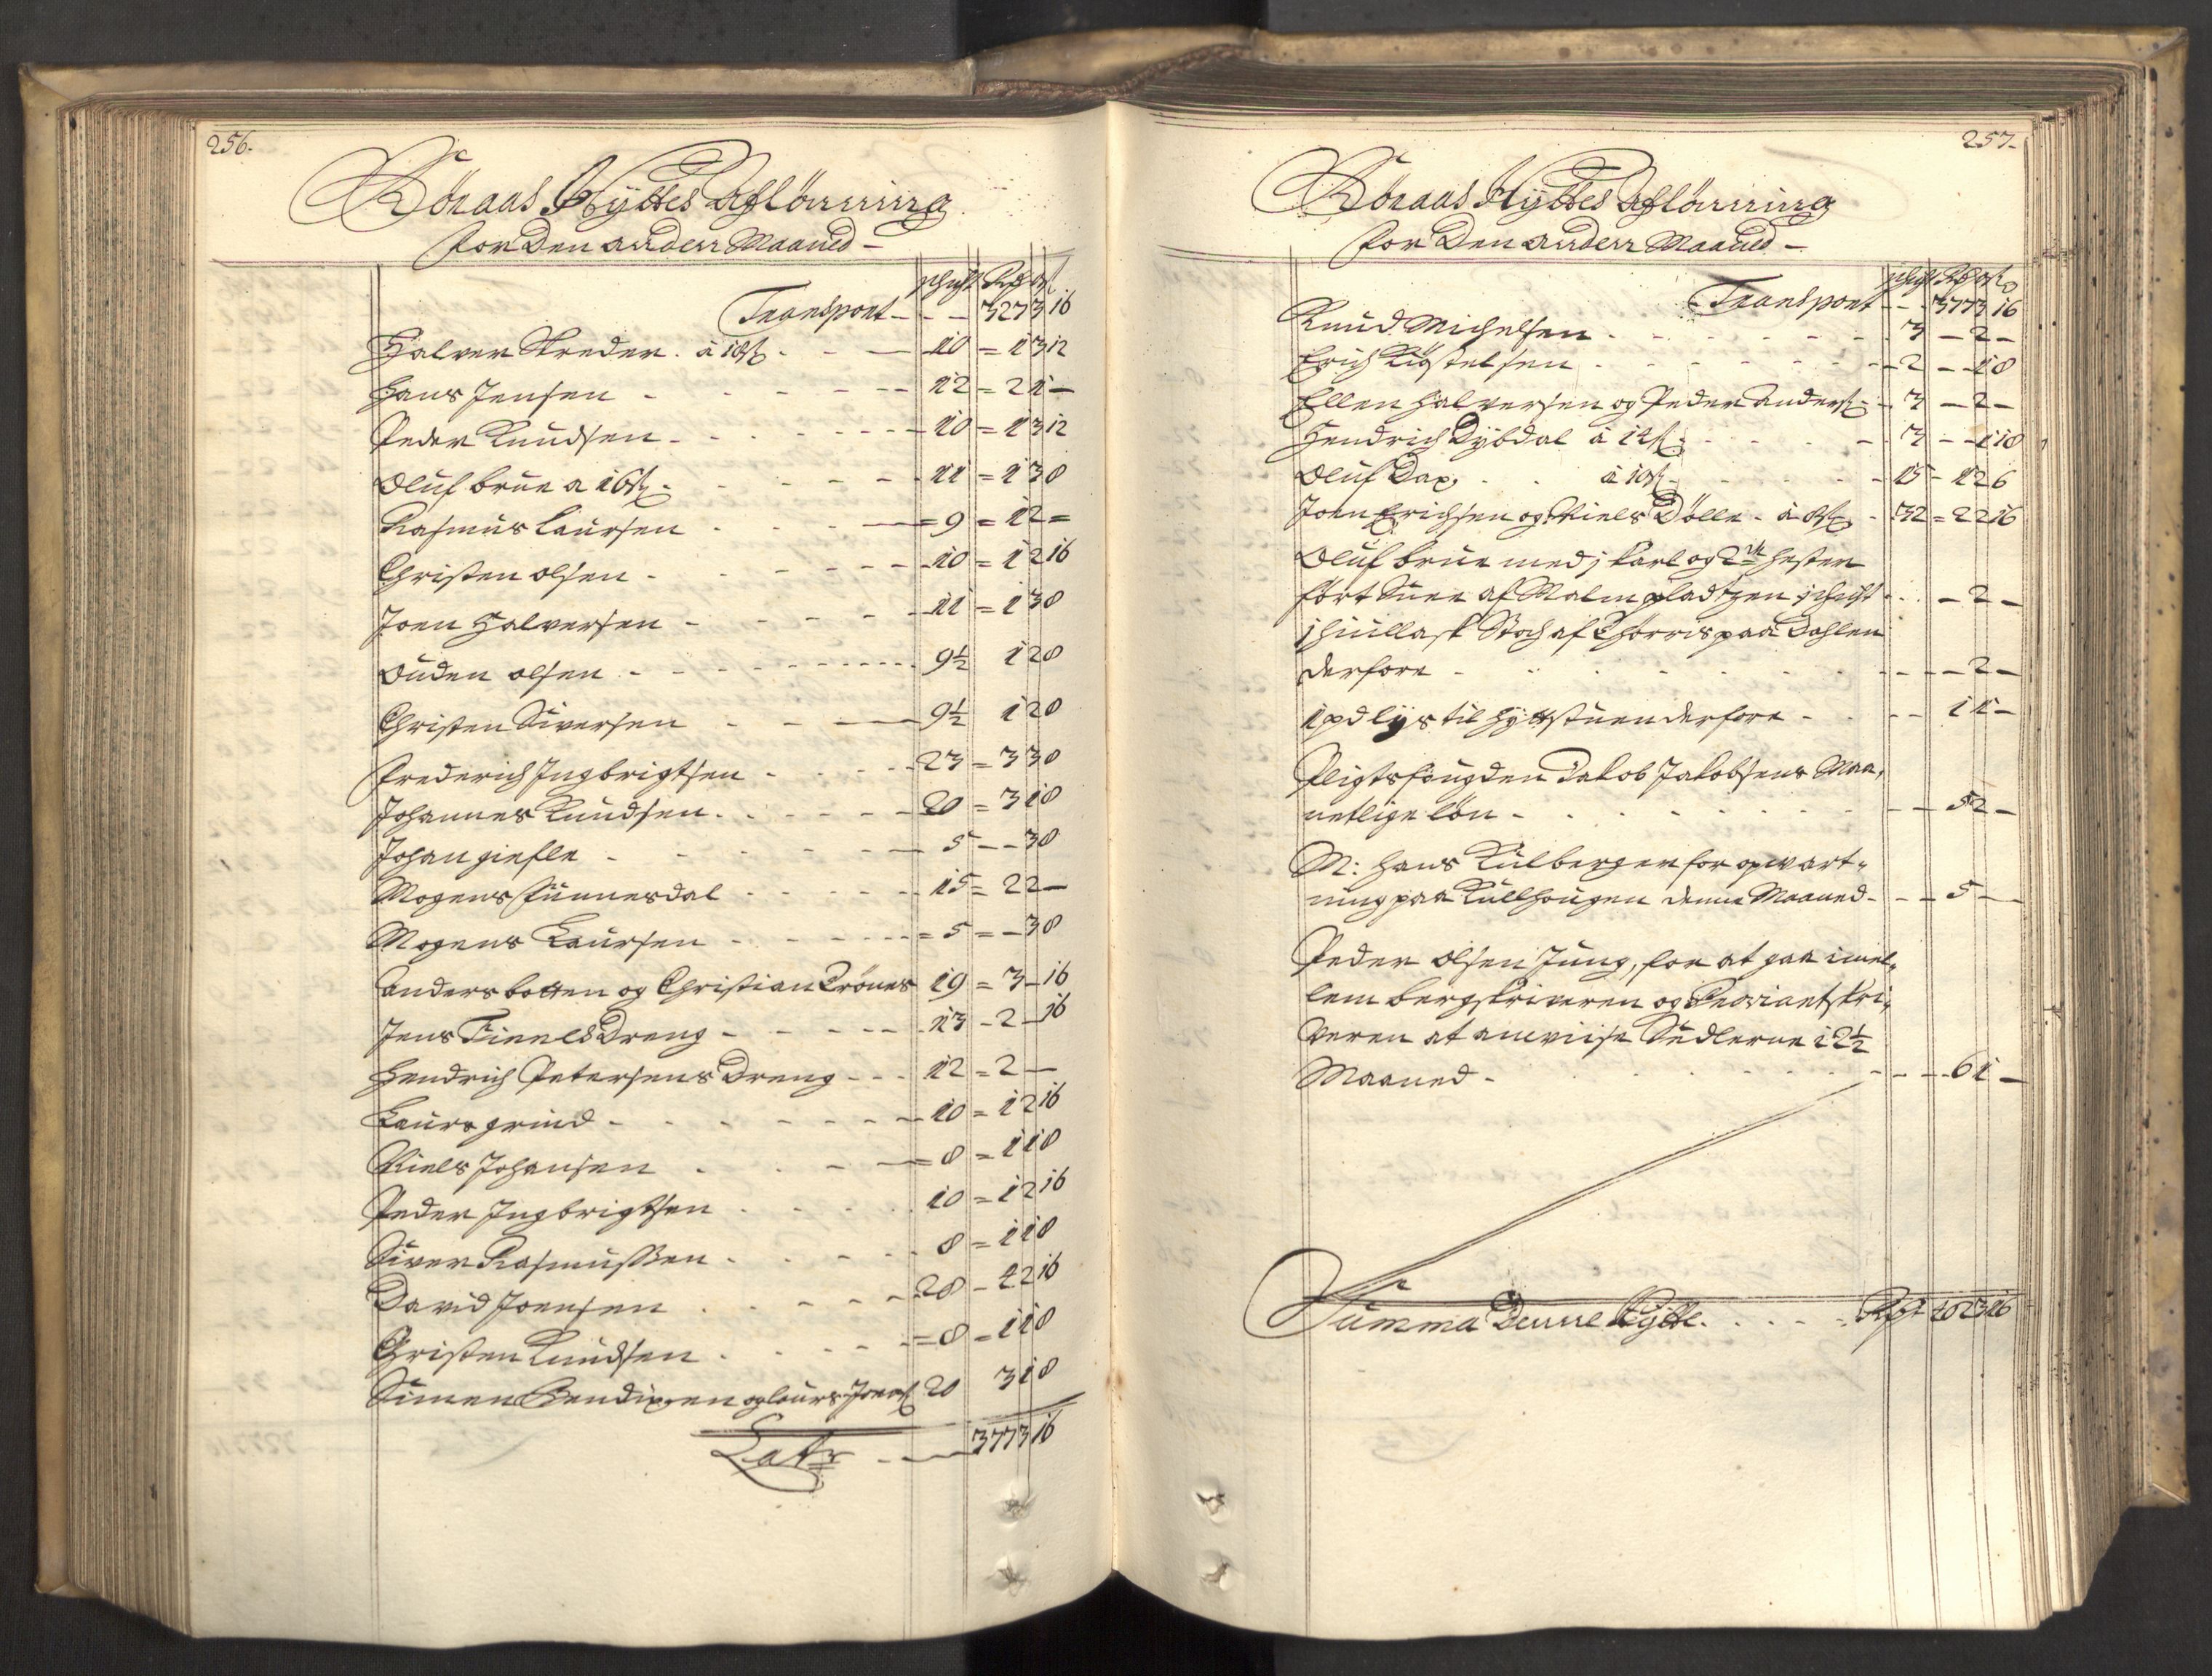 256.
Röraas Hyttes Aflönning
for Den anden Maaned -
schigt Rdr ort ß
Transport - - - 327 3 16
Halver Skreder . à 16 ß . - - 10 = 1 3 12
Hans Jensen - - - - - 12 = 2 1 -
Peder Knudsen - - - - 10 = 1 3 12
Oluf brun a 16 ß - - - - 11 = 1 3 8
Rasmus Laursen - - - = 9 = 1 2 =
Christen olsen - - - - 10 = 1 2 16
Joen Halversen - - - - 11 = 1 3 8
Ouden olsen - - - - 9½ 1 2 8
Christen Siversen - - - 9½ 1 2 8
Frederich Ingbrigtsen - - - 23 = 3 3 8
Johannes Knudsen - - - 20 = 3 1 8
Johan giefle - - - - 5 - - 3 8
Mogens Sunnesdal - - - 15 = 2 2 -
Mogens Laursen - - - = 5 = - 3 8
Anders botten og Christian Crönes 19 = 3 - 16
Jens Finels Dreng - - - - 13 - 2 - 16
Hendrich Petersens Dreng - - - 12 = 2 -
Laurs grind - - - - - 10 = 1 2 16
Niels Johansen - - - = 8 = 1 1 8
Peder Ingbrigtsen - - - 10 = 1 2 16
Siver Rasmussen - - - - 8 = 1 1 8
David Joensen - - - - 28 - 4 2 16
Christen Knudsen - - - = 8 - 1 1 8
Simen Bendixen og Laurs Joens: 20 3 1 8
Latr - - 377 3 16
257.
Röraas Hyttes Aflönning
for Den anden Maaned -
schigt Rdr ort ß
Transport - - 377 3 16
Knud Michelsen - - - - 3 - 2 -
Erich Kiöstelsen - - - - 2 - - 1 8
Ellen Halversen og Peder Anders: - 3 - 2 -
Hendrich Dybdal à 12 ß - - - 3 - - 1 18
Oluf Dax. - à 10 ß - - - 15 - 1 2 6
Joen Erichsen og Niels Dölle - à 8 ß - 32 = 2 2 16
Oluf brun med j karl og 2de hester
fört Snee af Malmpladtzen j schigt - - 2 -
j hullask Stoch af Thorris paa Dahlen
derfore - - - - - - 2 -
1 pd lys til hyttstuen derfore - - - 1 1 -
Pligtsfougden Jakob Jakobsens Maa,
netlige lön - - - - - - 5 2 -
M: Hans Kulberger for opvart-
ning paa Kullhougen denne Maaned - - - 5 - -
Peder olsen Jung, for at gaa imel,
lem bergskriveren og Proviantskri,
veren at anviise Sedlerne i 2½
Maaned - - - - - - 6 1 -
Summa Denne Hytte . . . . Rdr 402 3 16